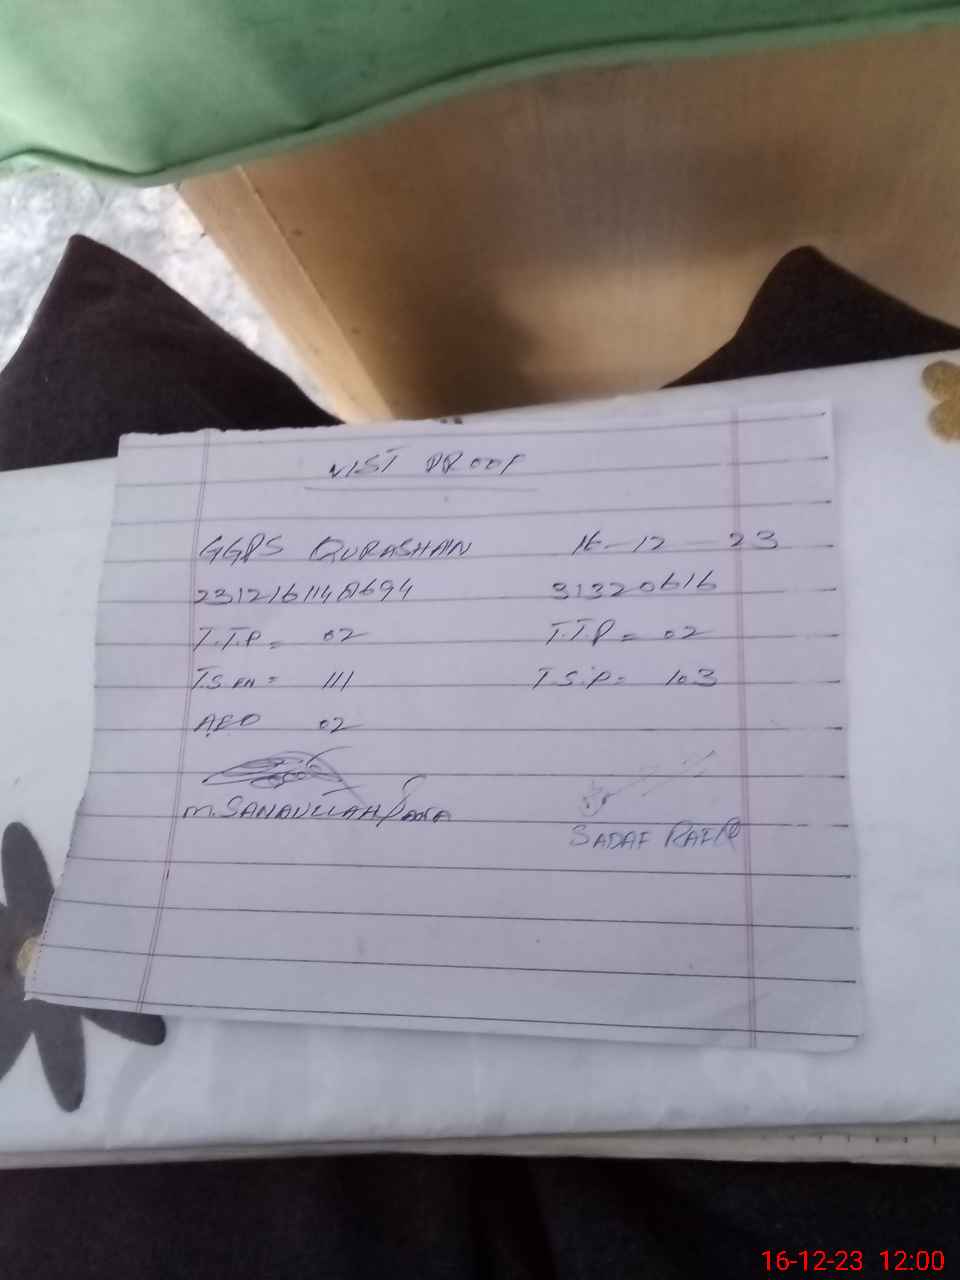 VIST PROOF
GGPS QURASHAIN 16-12-23
231216114A694 31320616
T.T.P = 02 T.T.P = 02
T.S. EN = 111 T.S.P = 103
AEO 02
M. SANAULLAH
SADAF RAFIQ
16-12-23 12:00